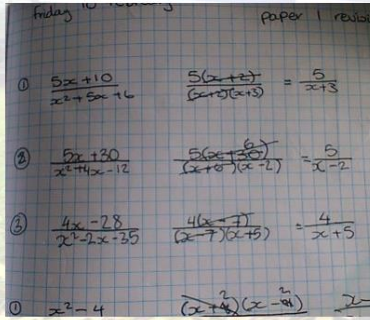 friday 10 paper 1 revisi
① 5x + 10 / x² + 5x + 6   5(x+2) / (x+2)(x+3) = 5 / x+3
② 5x + 30 / x² + 4x - 12   5(x + 6) / (x+6)(x - 2) = 5 / x - 2
③ 4x - 28 / x² - 2x - 35   4(x - 7) / (x - 7)(x + 5) = 4 / x + 5
① x² - 4   (x + 2)(x - 2)   x -